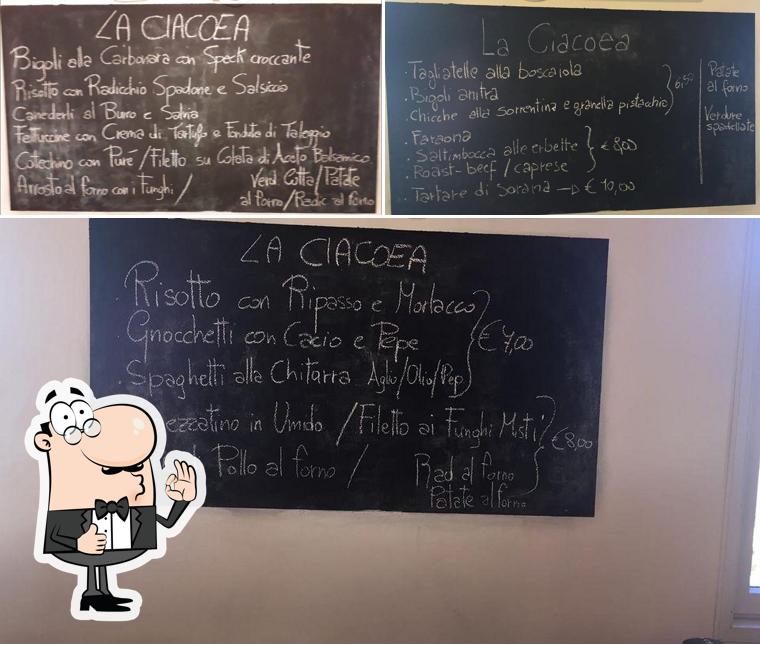 LA CIACOEA
Bigoli alla Carbonara con Speck croccante
Risotto con Radicchio Spadone e Salsiccia
Canederli al Burro e Salvia
Fettuccine con Crema di Tartufo e Fonduta di Taleggio
Cotechino con Purè / Filetto su Colata di Aceto Balsamico
Arrosto al forno con i Funghi /
Verd Cotta / Patate
al forno / Radic al forno
La Ciacoea
· Tagliatelle alla boscaiola
· Bigoli anitra
· Chicche alla sorrentina e granella pistacchio
6,50
· Faraona
· Saltimbocca alle erbette
· Roast-beef / caprese
€ 8,00
· Tartare di Sorana → € 10,00
Patate
al forno
Verdure
spadellate
LA CIACOEA
· Risotto con Ripasso e Morlacco
· Gnocchetti con Cacio e Pepe
· Spaghetti alla Chitarra Aglio/Olio/Pep
€ 7,00
ezzatino in Umido / Filetto ai Funghi Misti
Pollo al forno /
Rad al forno
Patate al forno
€ 8,00